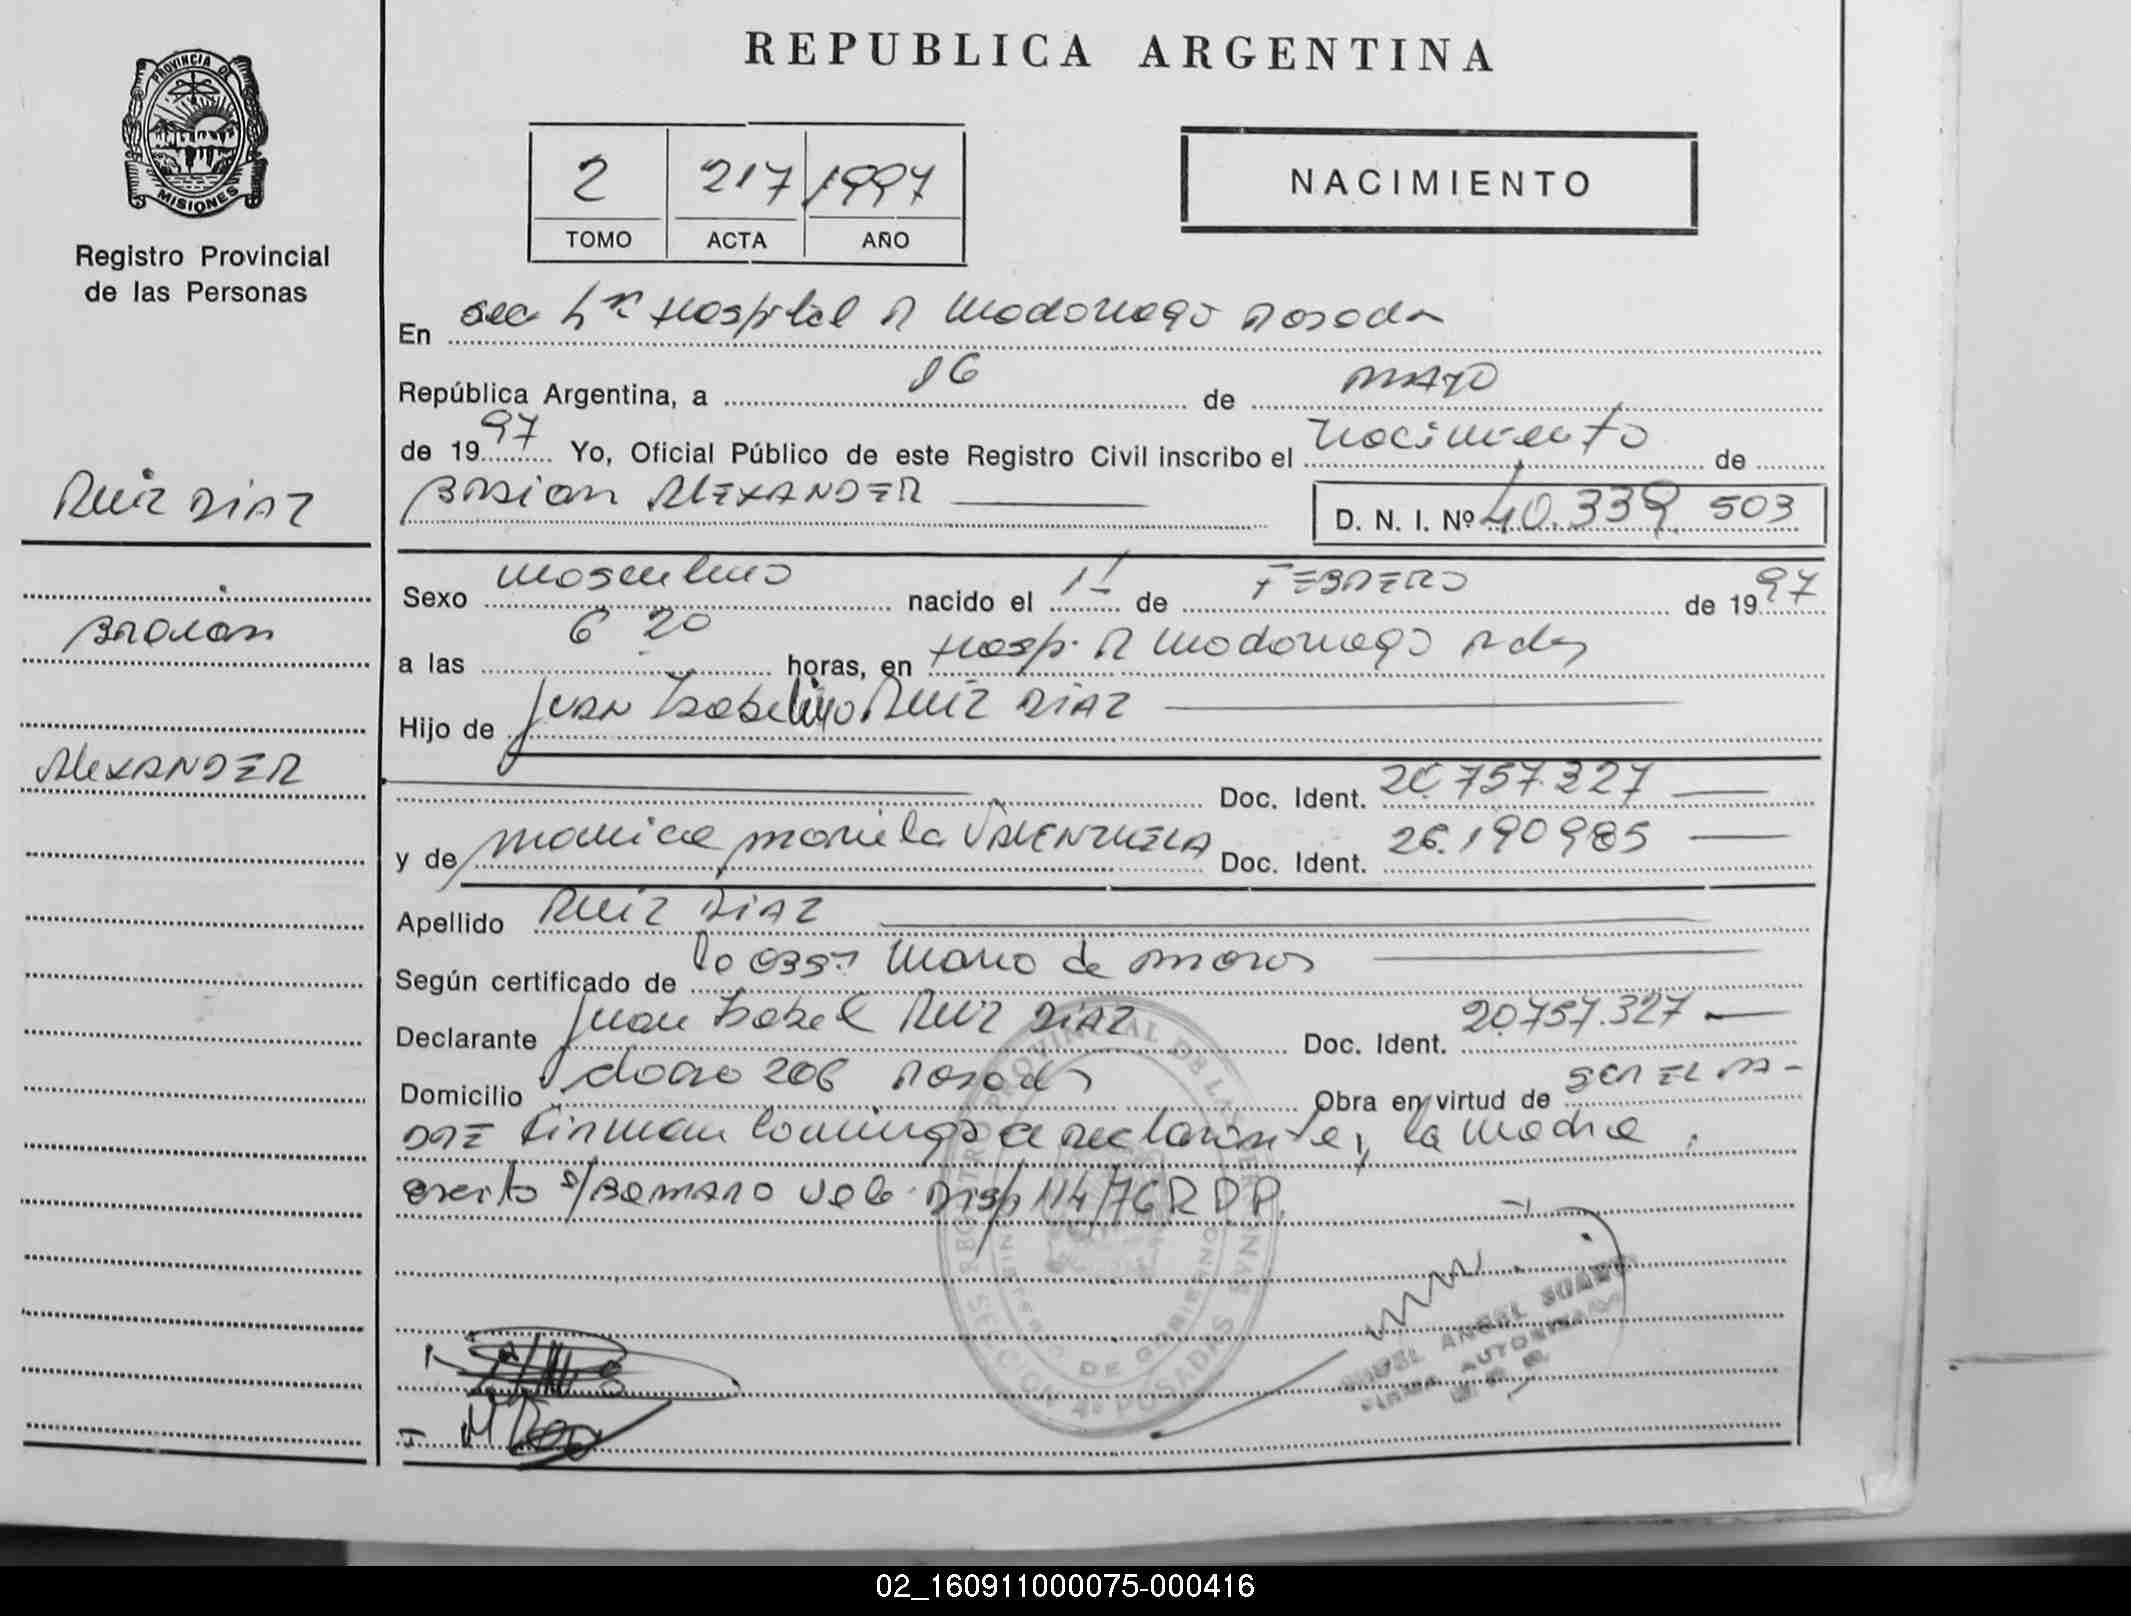 REPUBLICA ARGENTINA
PROVINCIA DE
MISIONES
Registro Provincial
de las Personas
2 217 1997
TOMO ACTA AÑO
NACIMIENTO
En Sec 4ta Hospital R Madariaga Posadas
República Argentina, a 16 de MAYO
de 1997 Yo, Oficial Público de este Registro Civil inscribo el nacimiento de
BRAIAN ALEXANDER
D. N. I. Nº 40.339.503
RUIZ DIAZ
BRAIAN
ALEXANDER
Sexo masculino nacido el de FEBRERO de 1997
a las 6 20 horas, en Hosp. R Madariaga Pdas
Hijo de JUAN Isabelino RUIZ DIAZ
Doc. Ident. 20.757.327
y de Monica Mariela VALENZUELA Doc. Ident. 26.190985
Apellido RUIZ DIAZ
Según certificado de la obst Maria de
Declarante Juan Isabel RUIZ DIAZ Doc. Ident. 20.757.327
Domicilio 206 Posadas Obra en virtud de SER EL PA-
DRE Firman conmigo el declarante, la madre
escrito s/ vale Disp 114/76 R D P.
REGISTRO PROVINCIAL DE LAS PERSONAS
MINISTERIO DE GOBIERNO
SECCION 4ª POSADAS
ANGEL
FIRMA AUTORIZADA
02_160911000075-000416